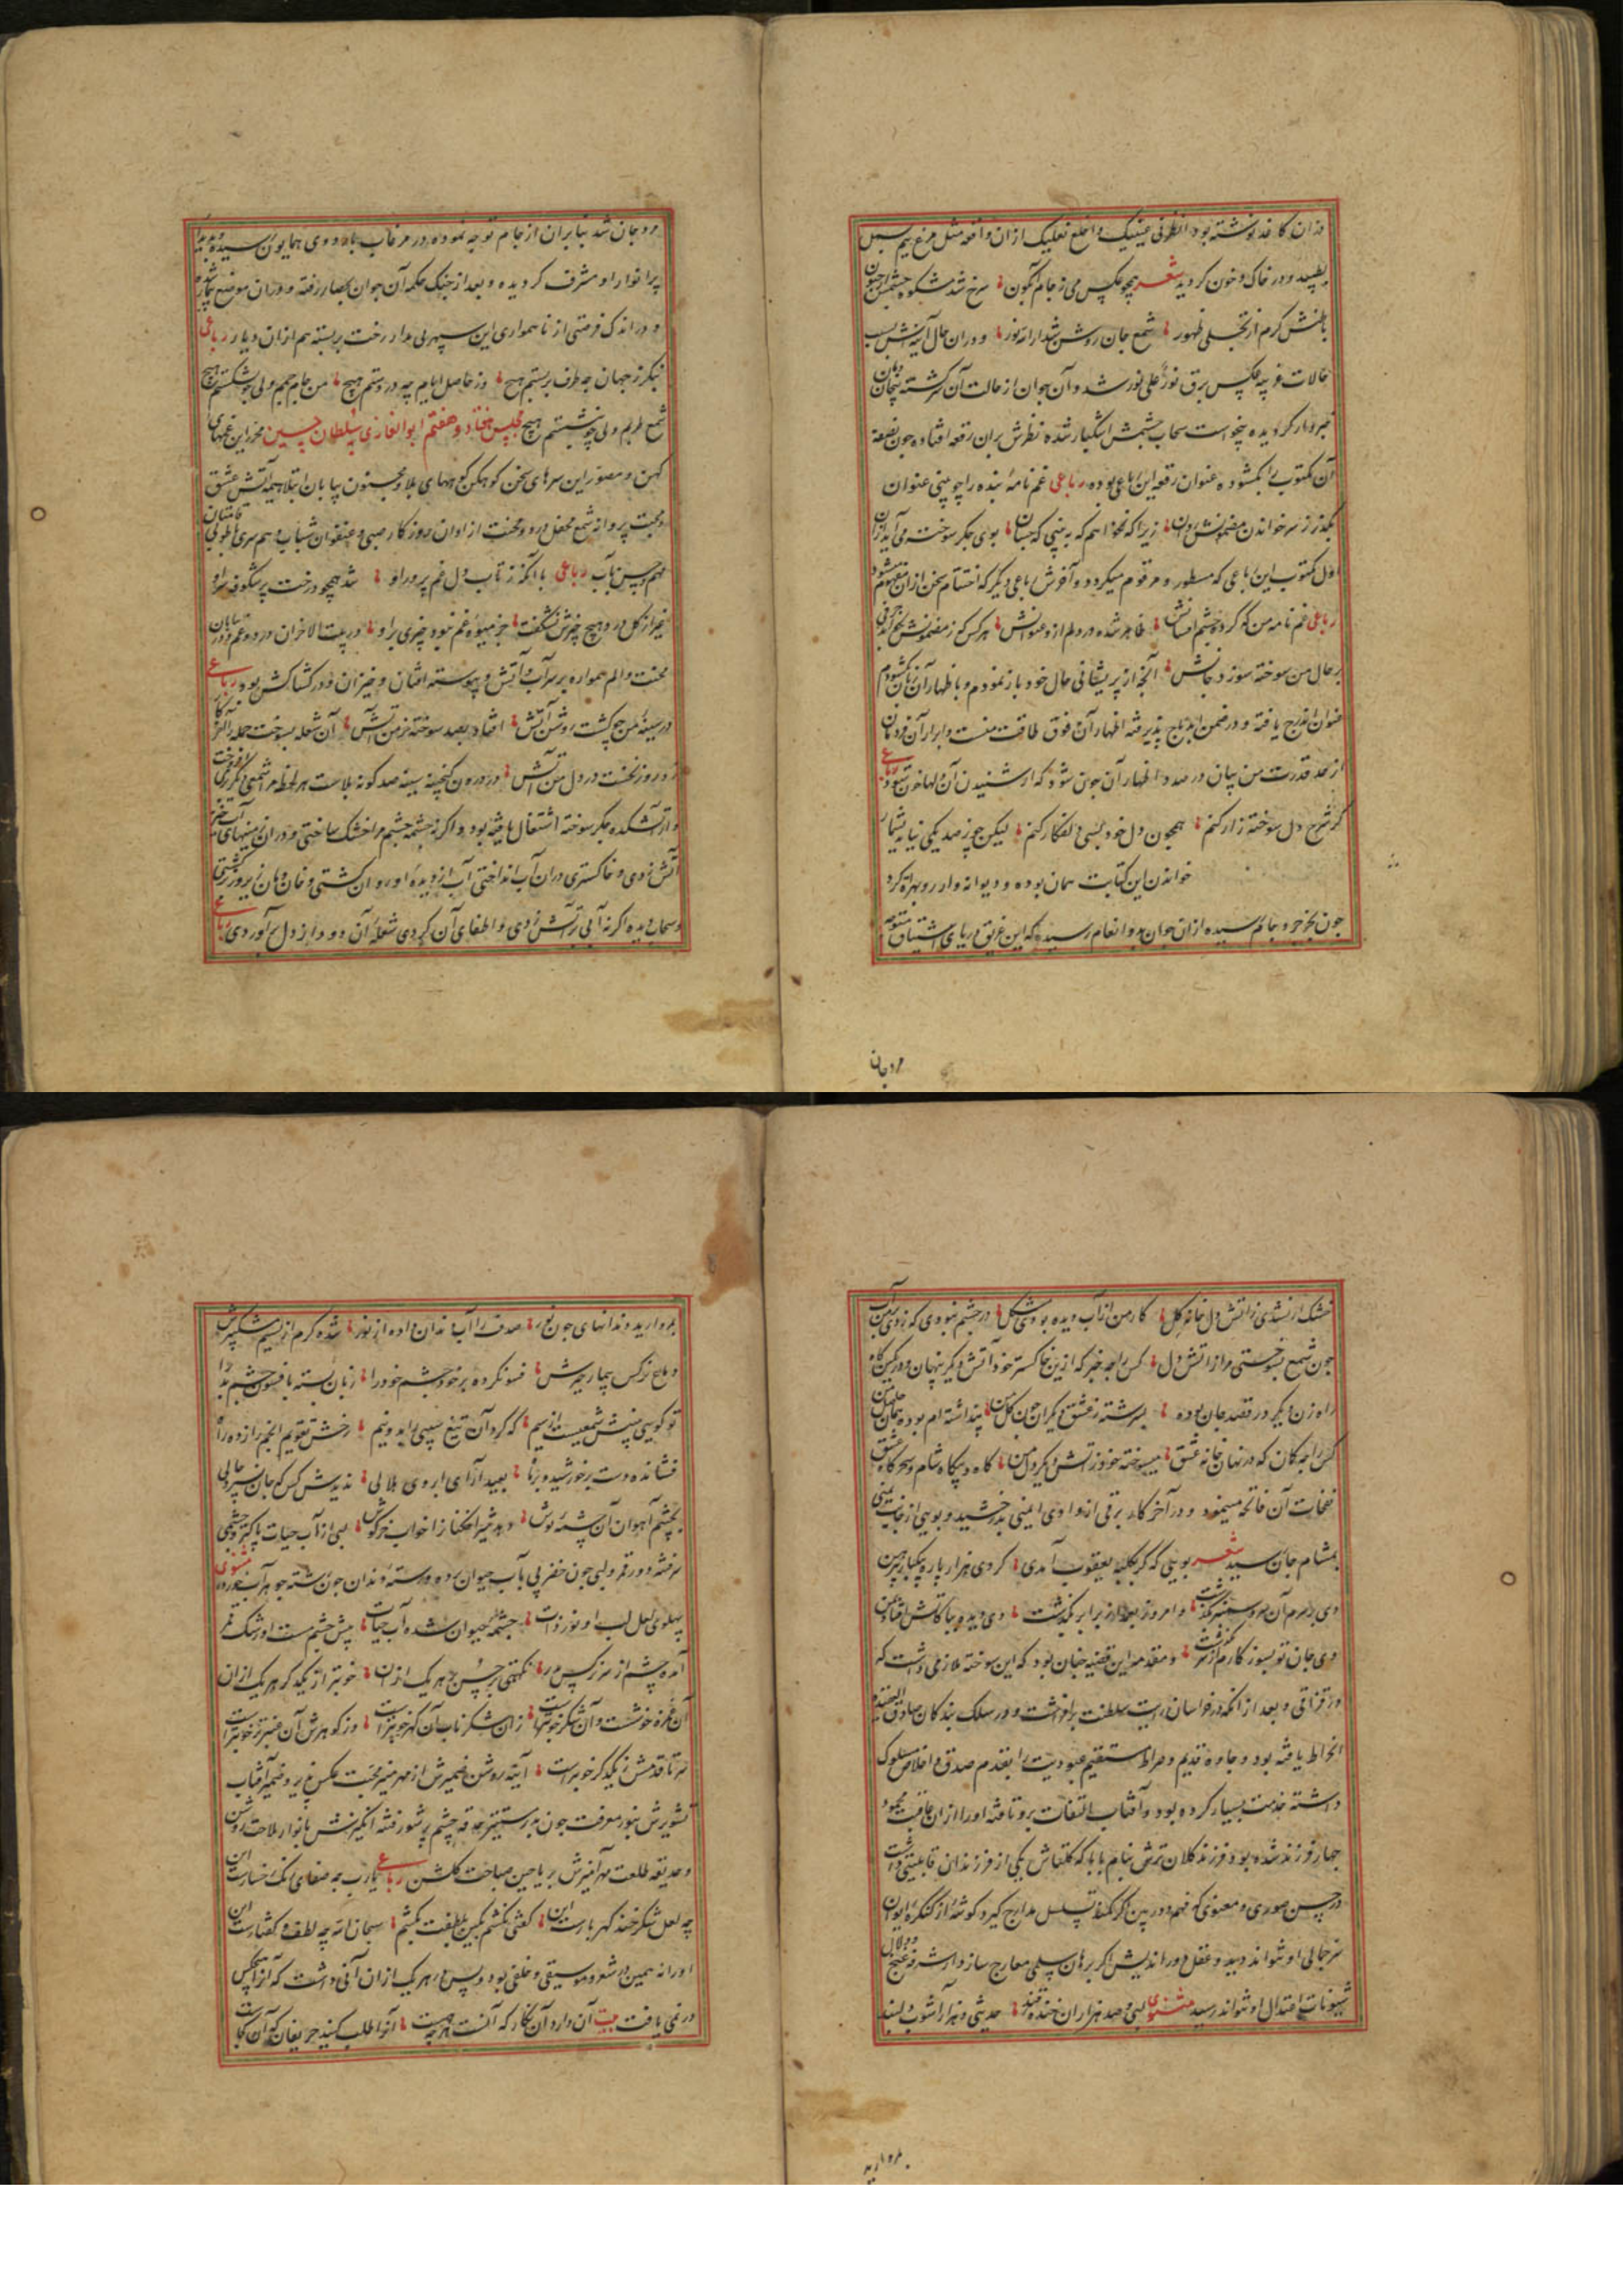 بطپید و در خاک و خون کردید شعر همچو عکس می ز جام نیلگون سرخ شد مشکوة چشمش از خون
باطنش کرم از تجلی ظهور شمع جان روشن شد از انه نور و در آن حال آتش
حالات غریبه عکس برق نور علی نور شد و آن جوان از حالت آن کشته پیچان
خبردار کردیده میخواست سحاب چشمش اشکبار شده نظرش بران رقعه افتاده چون
آن مکتوب را بکشوده عنوان رقعه این رباعی بوده رباعی غم نامه بنده را چو بینی عنوان
بگذر ز سر خواندن مضمونش روان زیرا که نخواهم که ببینی که جسان بوی جگر سوخته می آید از آن
اول مکتوب این رباعی که مسطور و مرقوم میگردد و آخرش رباعی دیگر که اختتام سخن از آن مفهوم میشود
رباعی غم نامه من که کرد چشم افشانش ظاهر شده درد دلم از عنوانش هر کس که ز مضمونش
بر حال من سوخته سوزد جانش آنچه از پریشانی حال خود باز نمودم و باظهار آن زبان کشودم
از حد قدرت من بیان درصدد اظهار آن چون شود که از شنیدن آن دلها خون شود رباعی
گر شرح دل سوخته زار کنم همچون دل خود بسی دل افکار کنم لیکن چو ز صد یکی نیاید بشمار
خواندن این کتابت همان بوده و دیوانه وار رو بصحرا کرد
چون بخرجرد جام رسیده از آن جوان بدو انعام رسیده که این غریق دریای اشتیاق متوجه
مروجان
مروجان شد بنابران از جام توجه نموده در مرغاب باردوی همایون رسیده
پر انوار او مشرف کردیده و بعد از جنگ حکمه آن جوان بحصار رفته و در آن موضع بیمار شد
و در اندک فرصتی از ناهمواری این سپهر بی مدار رخت بربسته هم از آن دیار رباعی
بنگر ز جهان چه طرف بربستم هیچ وز حاصل ایام چه در دستم هیچ من جام جمم ولی چو بشکستم هیچ
شمع طربم ولی چو بنشستم هیچ مجلس هفتاد و هفتم ابو الغازی سلطان حسین محرر این غمهای
کهن و مصور این سرهای سخن کوهکن کوههای بلا و مجنون بیابان ابتلا همه آتش عشق
و محبت پروانه شمع محفل درد و محنت از اوان روزکار صبی و عنفوان شباب
رباعی با آنکه ز تاب دل غم پرور او شد همچو درخت پر شکوفه سر او
غیر از گل درد هیچ چیزش نشگفت جز میوه غم نبود چیزی بر او در بیت الاحزان درد و غم و در بیابان
محنت و الم همواره بر سر آب و آتش و پیوسته افتان و خیزان در کشاکش بود رباعی
در سینه من چو گشت روشن آتش افتاد بصد سوخته خرمن آتش آن شعله بسوخت جمله را
روز نخست در دل من آتش در درون گنجینه سینه صد گونه بلاست هر لحظه مرا شمعی دیگری افروختی
و از آتشکده جگر سوخته اشتعال یافته بود و اگر نه چشمه چشم مرا خشک ساختی و در آن
آتش زدی و خاکستری در آن آب انداختی آب از دیده
و سحاب دیده اگر نه آبی بر آتش زدی و اطفای آن کردی شعله آن دود از دل برآوردی رباعی
خشک ار نشدی ز آتش دل خانه گل کار من از آب دیده بودی مشکل در چشم نبودی که زدی بر من آب
چون شمع بسوختی مرا ز آتش دل کس را چه خبر که از این خاکستر خود آتش دیگر پنهان و در کمین گاه
راه زن دیگر در قصد جان بوده سررشته ز عشق دیگران چون گل من پنداشته ام بوده همان
کس را چه گمان که در نهان خانه عشق میسوخته خود ز آتش دیگر دل من گاه و بیگاه شام و سحرگاه
نفحات آن فاتحه مینمود و در آخر کار برقی از وادی ایمنی بدرخشید و بویی از جانب یمنی
بمشام جان رسید شعر بویی که گر بکلبه یعقوب آمدی کردی هزار پاره بیکبار پیرهن
وی جان تو بسوز کارم از سر گذشت و مقدمه این قضیه چنان بود که این سوخته ملازمی داشت که
در قزاقی و بعد از آنکه در خراسان رایت سلطنت برافراشت و در سلک بندگان صادق العقیده
انخراط یافته بود و جاده قدیم و صراط مستقیم عبودیت را بقدم صدق و اخلاص مسلوک
داشته خدمت بسیار کرده بود و آفتاب التفات برو تافته او را از آن عاقبت محمود
چهار فرزند شده بود فرزند کلان ترش بنام بابا که کلتاش یکی از فرزندان قابلیتی داشت
در حسن صوری و معنوی که فهم دوربین گر کمند تسلسل مدارج گیرد گوشه از کنگره ایوان
سر جمالی او نتواند دید و عقل دوراندیش اگر برهان سلمی معارج سازد
شیونات اعتدال او نتواند رسید مثنوی لبی و صد هزاران خنده چند حدیثی و هزار آشوب دلبند
بمروارید
بمروارید دندانهای چون نور صدف را آب دندان داده از نور شده گرم از نسیم مشک بیزش
دماغ نرگس بیمار خیزش فسونگر کرده بر خود چشم خود را زبان بسته بافسون چشم بد را
تو گویی بینیش تیغیست از سیم که کرد آن تیغ سیبی را بدو نیم رخش تقویم انجم را زده راه
فشانده دست بر خورشید و بر ماه بعید آرای ابروی هلالی ندیدش کس که جان نسپرد حالی
بچشم آهوان آن چشمه نوش دهد شیرافکنان را خواب خرگوش لبی از آب حیات پاکتر و چشمی
سر فتنه دور قمر و لبی چون خضر پی بآب حیوان برده و رسته دندان چون رشته جوهر مثنوی
پهلوی لعل لب او نوررات چشمه حیوان شده آب حیات پیش چشم مست او رشک قمر
آن غمزه خوشست و آن شکر خوبتر است زان شکر ناب آن گهر خوبتر است وز گوهرش آن عنبر تر خوبتر است
سر تا قدمش ز یکدگر خوبتر است آینه روشن ضمیرش از مهر منیر محبت عکس پذیر و ضمیر آفتاب
تنویرش بنور معرفت چون بدر مستنیر حدقه چشم پر شور فتنه انگیزش بانوار ملاحت روشن
و حدیقه طلعت مهر آمیزش بریاحین صباحت گلشن رباعی یارب چه صفای رنگ رخسارست این
چه لعل شکر خند گهربارست این گفتی بکشم بگیر بلطفت بکشم سبحان الله چه لطف و گفتارست این
او را نه همین در شعر و موسیقی دخلی بود و بس در هر یک از آن آنی داشت که آن را هیچکس
در نمی یافت بیت آن دارد آن نگار که آنست هر چه هست آن را طلب کنید حریفان که آن کجاست